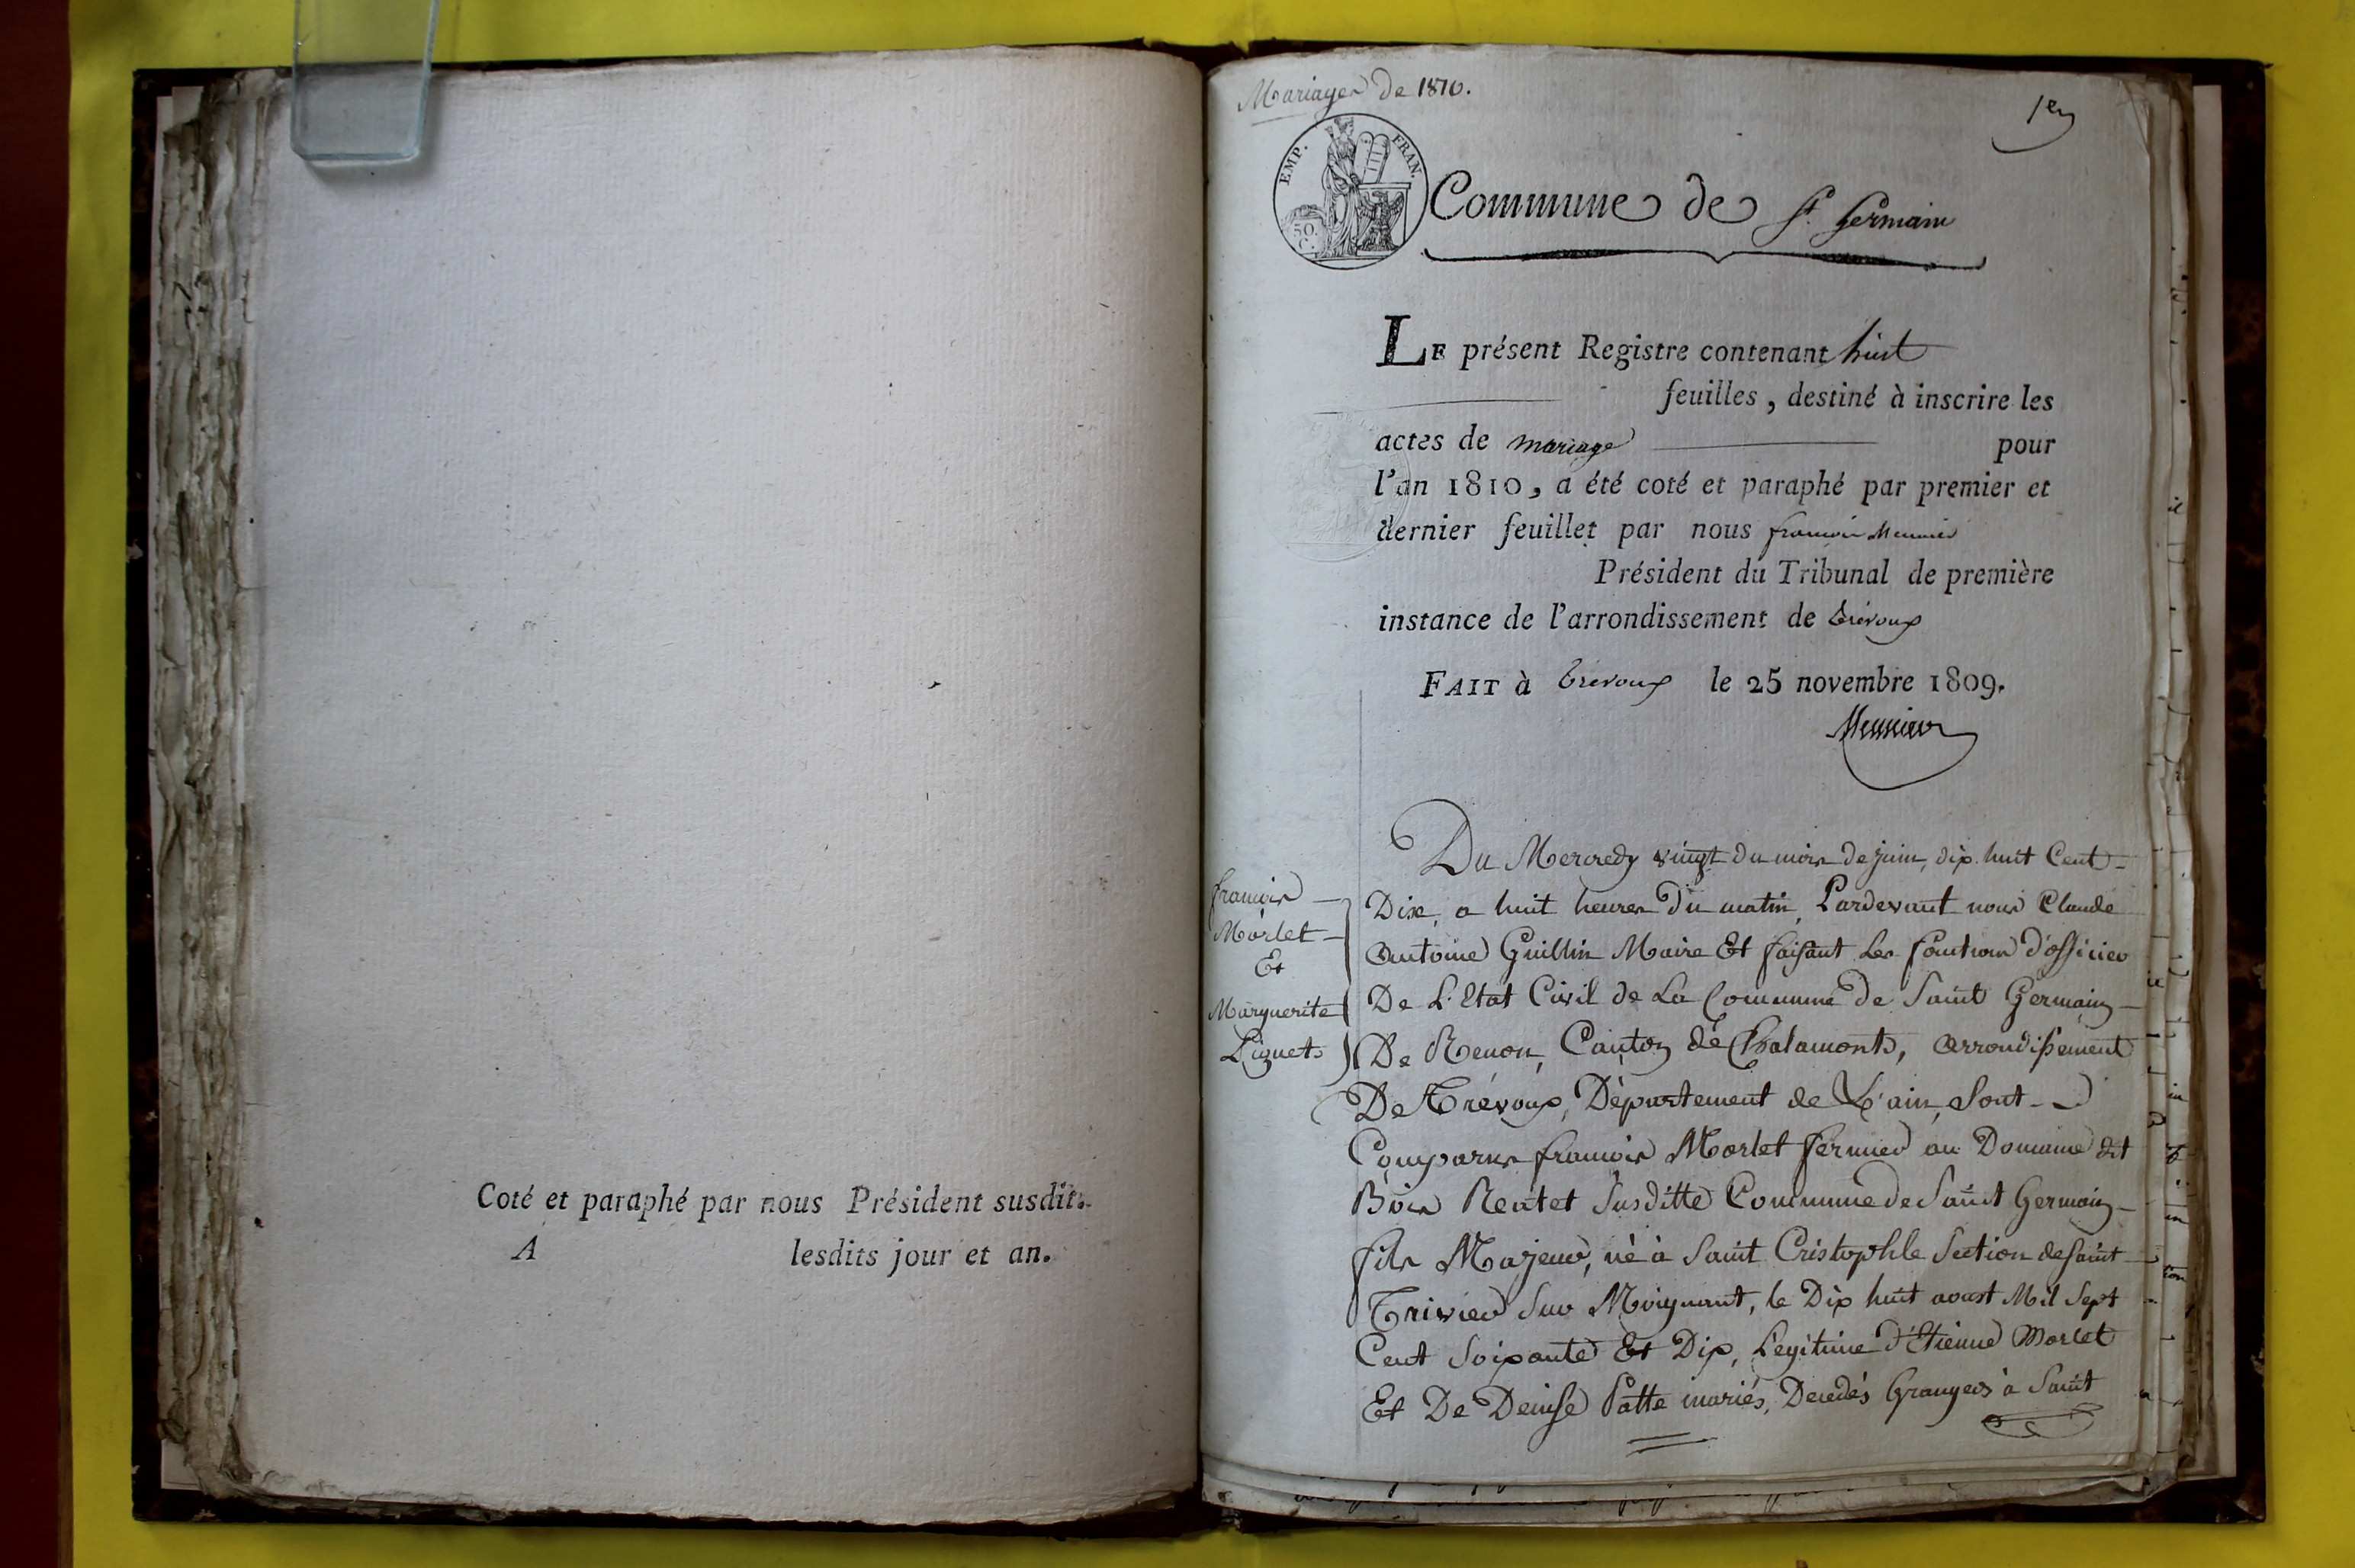 Coté et paraphé par nous Président susdit.
A lesdits jour et an.
Mariages de 1810.
1er
EMP. FRAN.
50.
C.
Commune de St. Germain
LE présent Registre contenant huit
feuilles, destiné à inscrire les
actes de mariage pour
l'an 1810, a été coté et paraphé par premier et
dernier feuillet par nous françois Meunier
Président du Tribunal de première
instance de l'arrondissement de trévoux
FAIT à trevoux le 25 novembre 1809.
Meunier
françois
Morlet
Et
Marguerite
Du Mercredy vingt du mois de juin, dix huit Cent
Dix, a huit heures Du matin, Pardevant nous Claude
Antoine Guillin Maire Et faisant Les fonctions d'officier
De L'Etat Civil de La Commune de Saint Germain
De Renon, Canton de Chalamont, arrondissement
De Trévoux, Département de L'ain, Sont
Comparus francois Morlet fermier au Domaine dit
Bois Rentet Susditte Commune de Saint Germain
fils Majeur, né à Saint Cristophle Section de Saint
Trivier Sur Moignant, le Dix huit aoust Mil Sept
Cent Soixante Et Dix, Légitime d'Etienne Morlet
Et De Denise Patte mariés, Decedés Grangers à Saint